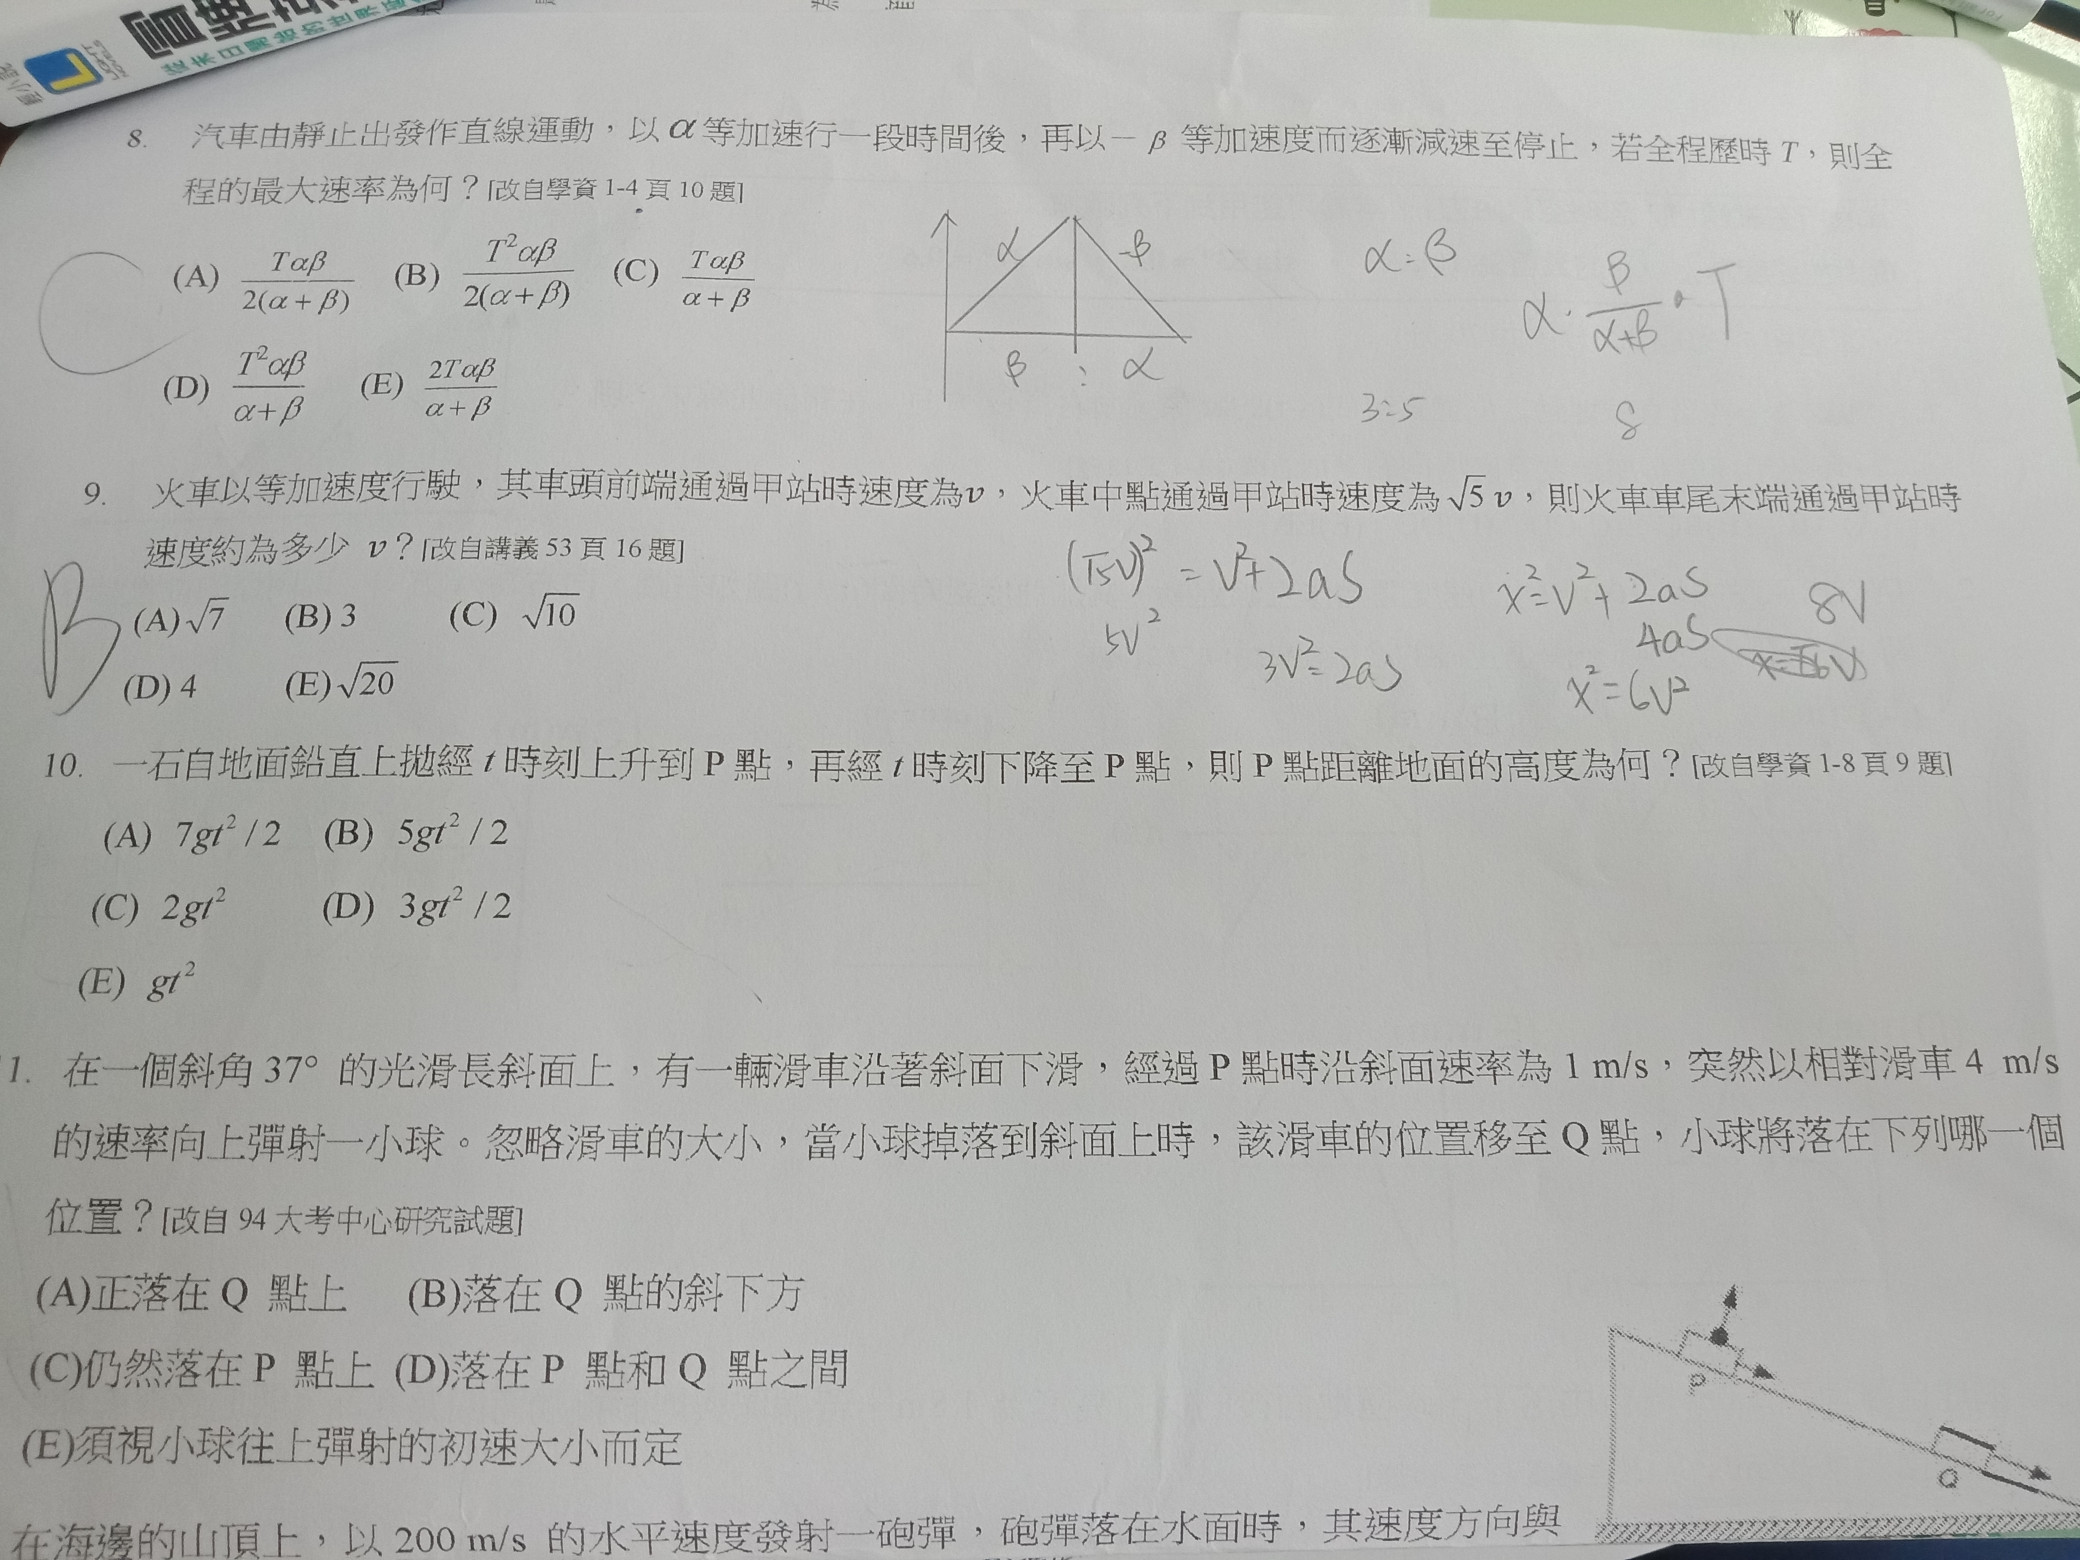 從末日開始的世界
LIGHT NOVELS
輕小說
8. 汽車由靜止出發作直線運動，以α等加速行一段時間後，再以－β 等加速度而逐漸減速至停止，若全程歷時 T，則全
程的最大速率為何？[改自學資 1-4 頁 10 題]
C
(A) Tαβ/2(α+β) (B) T²αβ/2(α+β) (C) Tαβ/α+β
(D) T²αβ/α+β (E) 2Tαβ/α+β
α -β
β : α
α:β
α·β/α+β·T
3:5 8
9. 火車以等加速度行駛，其車頭前端通過甲站時速度為v，火車中點通過甲站時速度為√5 v，則火車車尾末端通過甲站時
速度約為多少 v？[改自講義 53 頁 16 題]
B
(A)√7 (B) 3 (C) √10
(D) 4 (E)√20
(√5V)²=V²+2aS
5V²
3V²=2aS
x²=V²+2aS
4aS
x²=6V²
8V
10. 一石自地面鉛直上拋經 t 時刻上升到 P 點，再經 t 時刻下降至 P 點，則 P 點距離地面的高度為何？[改自學資 1-8 頁 9 題]
(A) 7gt²/2 (B) 5gt²/2
(C) 2gt² (D) 3gt²/2
(E) gt²
1. 在一個斜角 37° 的光滑長斜面上，有一輛滑車沿著斜面下滑，經過 P 點時沿斜面速率為 1 m/s，突然以相對滑車 4 m/s
的速率向上彈射一小球。忽略滑車的大小，當小球掉落到斜面上時，該滑車的位置移至 Q 點，小球將落在下列哪一個
位置？[改自 94 大考中心研究試題]
(A)正落在 Q 點上 (B)落在 Q 點的斜下方
(C)仍然落在 P 點上 (D)落在 P 點和 Q 點之間
(E)須視小球往上彈射的初速大小而定
P
Q
在海邊的山頂上，以 200 m/s 的水平速度發射一砲彈，砲彈落在水面時，其速度方向與